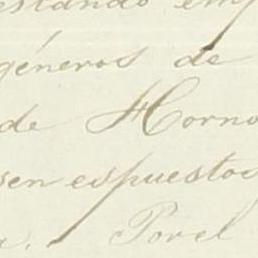 estando
géneros de
de Horno
sen espuestos
Porel